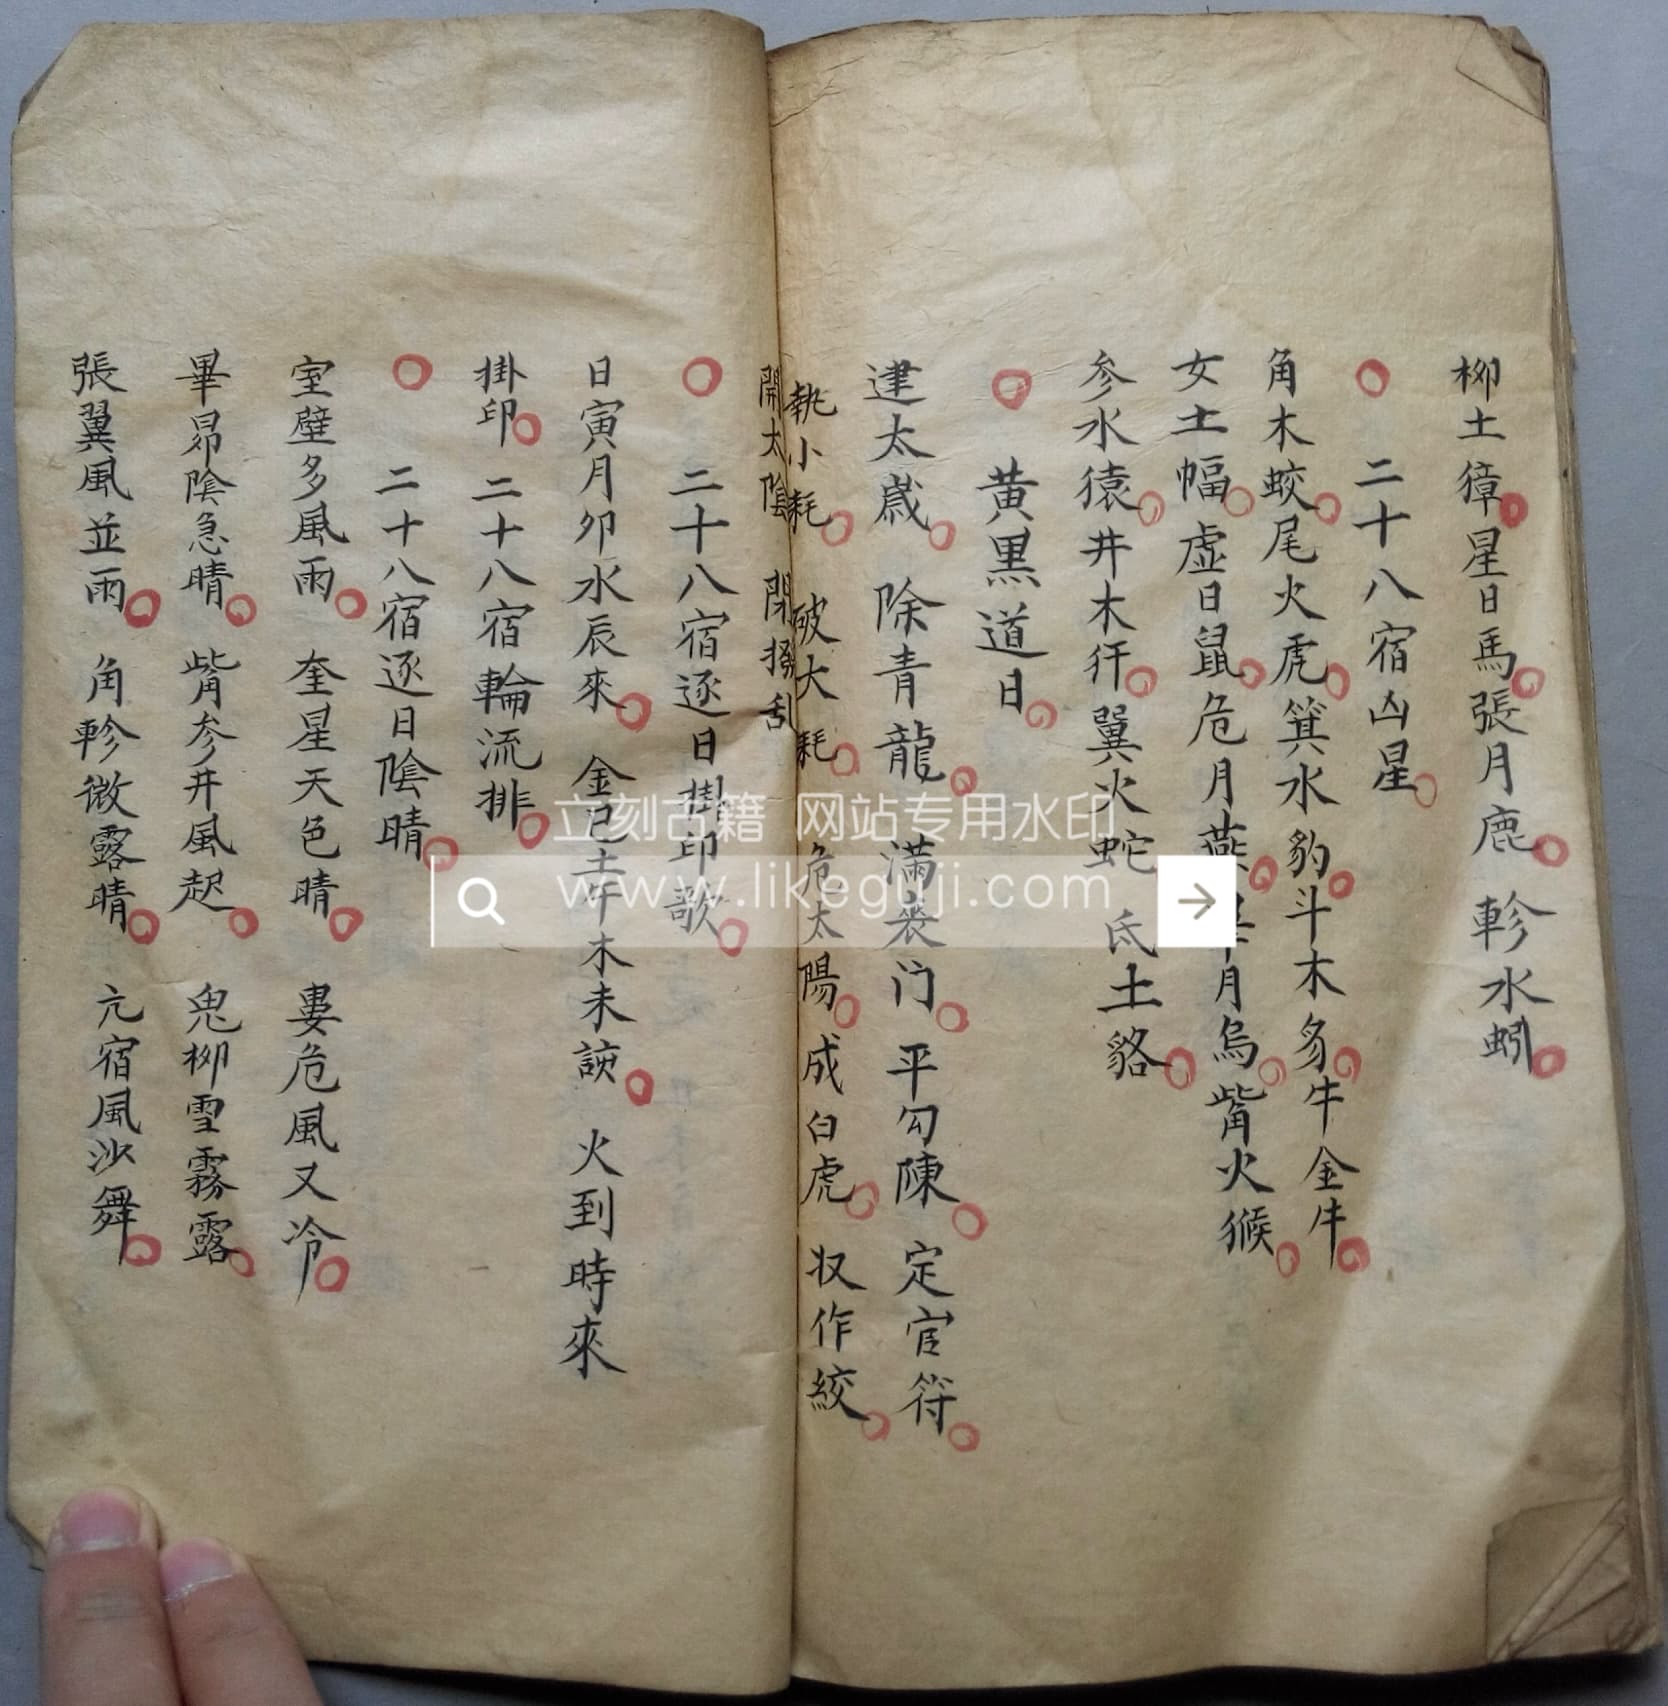 柳土獐星日馬張月鹿軫水蚓
二十八宿凶星
角木蛟尾火虎箕水豹斗木豸牛金牛
女土幅虚日鼠危月燕畢月烏觜火猴
参水猿井木犴翼火蛇氐土貉
黄黑道日
建太歲除青龍滿喪门平勾陳定官符
執小耗破大耗危太陽成白虎収作絞
開太陰閉撥乱
二十八宿逐日掛印歌
日寅月卯水辰來金巳土午木未諛火到時來
掛印二十八宿輪流排
二十八宿逐日陰晴
室壁多風雨奎星天色晴婁危風又冷
畢昴陰急晴觜参井風起鬼柳雪霧露
張翼風並雨角軫微露晴亢宿風沙舞
立刻古籍 网站专用水印
www.likeguji.com